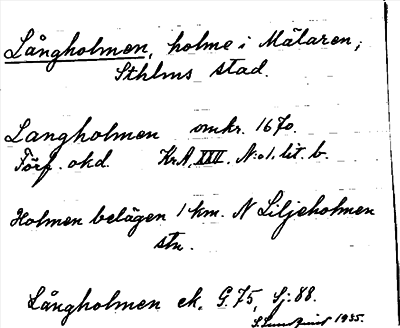 Långholmen, holme i Mälaren,
Sthlms stad.
Langholmen omkr. 1670.
Förf. okd. KrA, XXV, N:o 1, lit. b.
Holmen belägen 1 km. N Liljeholmen
stn.
Långholmen ek. G. 75, Sj: 88.
1935.